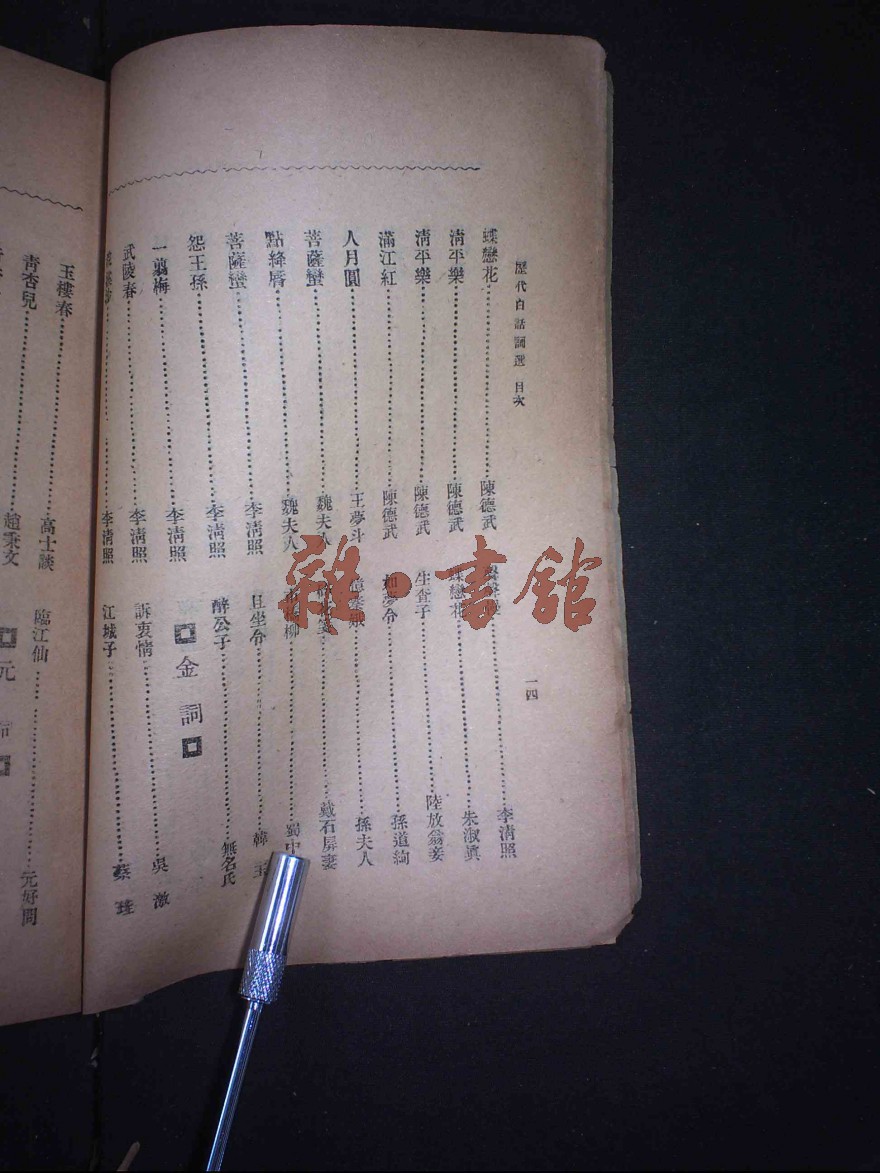 歷代白話詞選 目次
一四
蝶戀花……陳德武
清平樂……陳德武
清平樂……陳德武
滿江紅……陳德武
人月圓……王夢斗
菩薩蠻……魏夫人
點絳唇……魏夫人
菩薩蠻……李清照
怨王孫……李清照
一翦梅……李清照
武陵春……李清照
……李清照
……李清照
蝶戀花……朱淑眞
生查子……陸放翁妾
如夢令……孫道絢
……孫夫人
……戴石屏妻
柳……蜀中
且坐令……韓玉
醉公子……無名氏
金詞
訴衷情……吳激
江城子……蔡珪
玉樓春……高士談
青杏兒……趙秉文
臨江仙……元好問
元
雜·書館